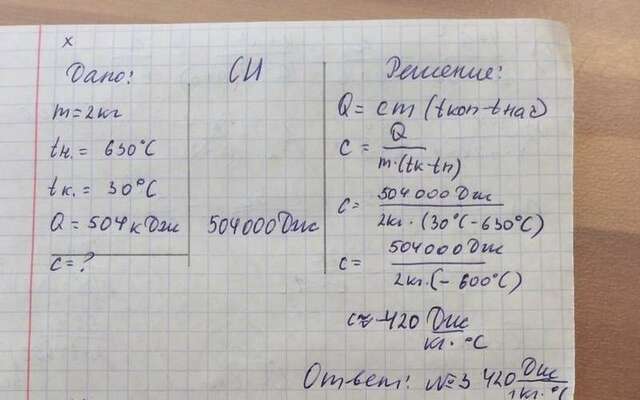 x
Дано:
СИ
Решение:
m = 2кг
tн. = 630°C
tк. = 30°C
Q = 504кДж
504000Дж
c = ?
Q = cm (tкон - tнач)
c = Q / m·(tк - tн)
c = 504000Дж / 2кг·(30°C - 630°C)
c = 504000Дж / 2кг·(-600°C)
c ≈ -420 Дж / кг·°C
Ответ: №3 420 Дж / кг·°C